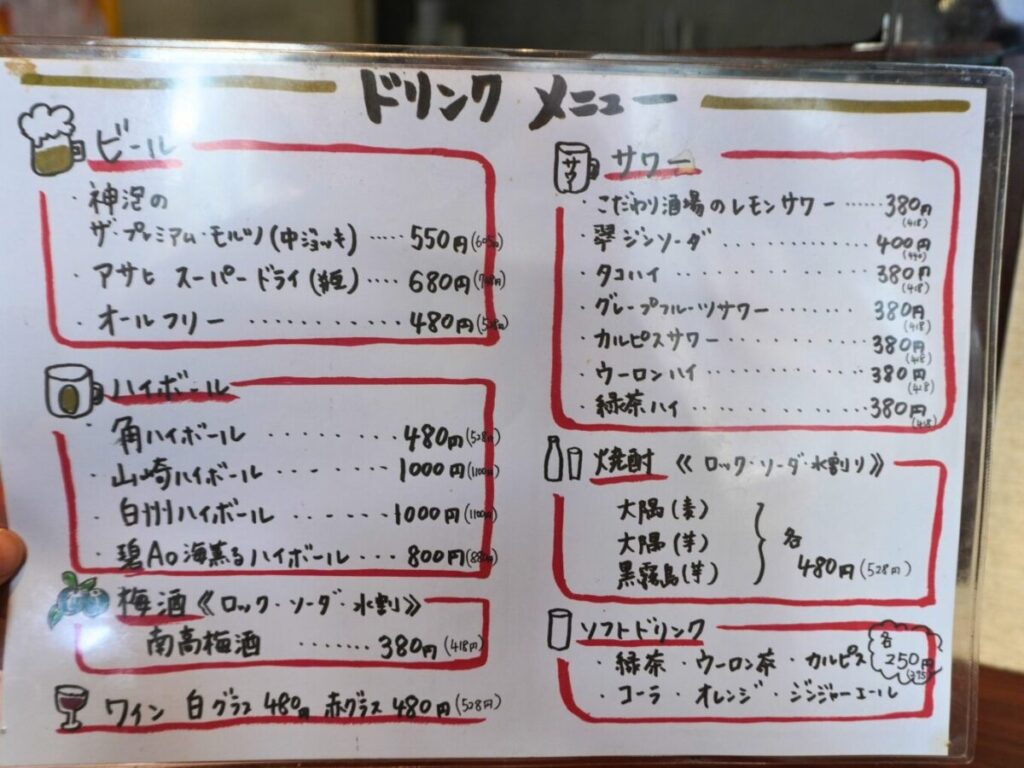 ドリンク メニュー
ビール
・神泡の
ザ・プレミアム・モルツ(中ジョッキ) ····· 550円(605円)
・アサヒ スーパードライ( ) ···· 680円(748円)
・オールフリー ··········· 480円(528円)
ハイボール
・角ハイボール ·········· 480円(528円)
・山崎ハイボール ········ 1000円(1100円)
・白州ハイボール ········ 1000円(1100円)
・碧Ao海薫るハイボール ···· 800円(880円)
梅酒《ロック・ソーダ・水割》
南高梅酒 ······· 380円(418円)
ワイン 白グラス 480円 赤グラス 480円(528円)
サワー
サワー
・こだわり酒場のレモンサワー ······ 380円(418)
・翠ジンソーダ ············ 400円(440)
・タコハイ ············· 380円(418)
・グレープフルーツサワー ······· 380円(418)
・カルピスサワー ·········· 380円(418)
・ウーロンハイ ··········· 380円(418)
・緑茶ハイ ············ 380円(418)
焼酎 《ロック・ソーダ・水割り》
大隅(麦)
大隅(芋)
黒霧島(芋)
各
480円(528円)
ソフトドリンク
・緑茶 ・ウーロン茶 ・カルピス
・コーラ ・オレンジ ・ジンジャーエール
各
250円
(275)